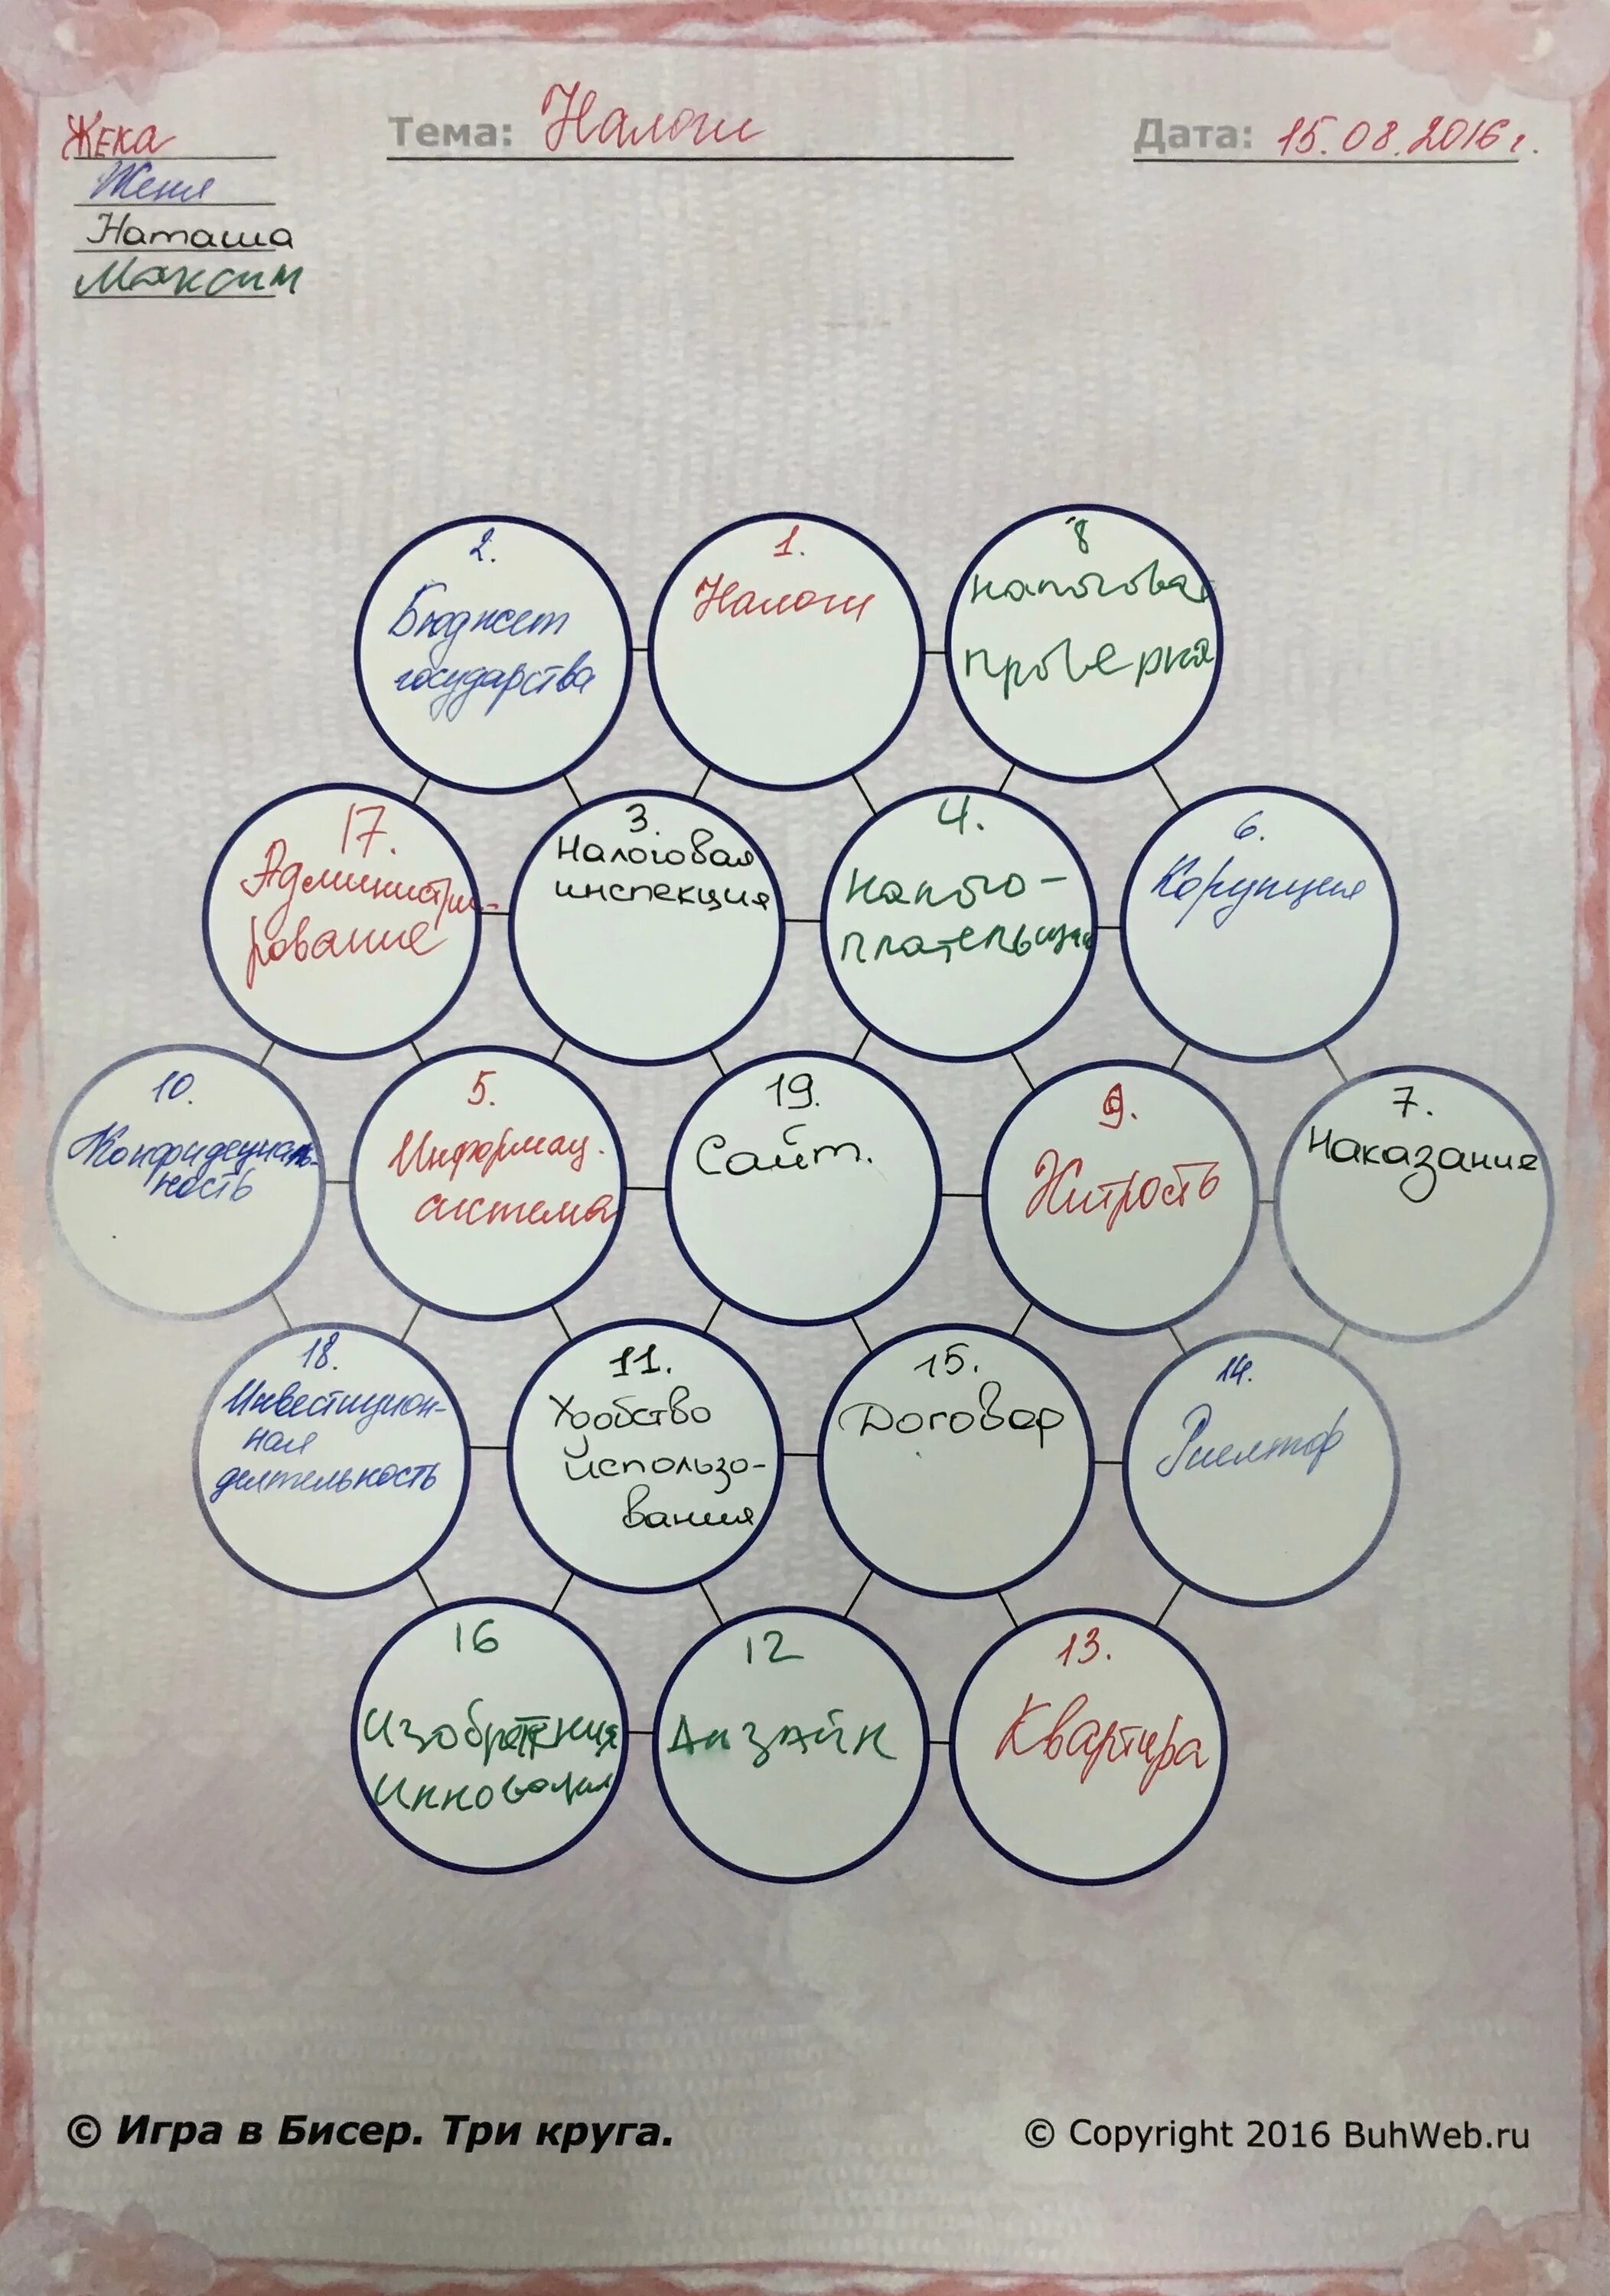 Жека
Тема: Налоги
Дата: 15.08.2016г.
Женя
Наташа
Максим
2.
Бюджет
государства
1.
Налоги
8
налоговая
проверка
17.
Администри-
рование
3.
Налоговая
инспекция
4.
налого-
плательщик
6.
Корупция
10.
Конфидециаль-
ность
5.
Информац.
система
19.
Сайт.
9.
Хитрость
7.
Наказание
18.
Инвестицион-
ная
деятельность
11.
Удобство
использо-
вания
15.
Договор
14.
Риелтор
16
Изобретения
Инновации
12
Дизайн
13.
Квартира
© Игра в Бисер. Три круга.
© Copyright 2016 BuhWeb.ru